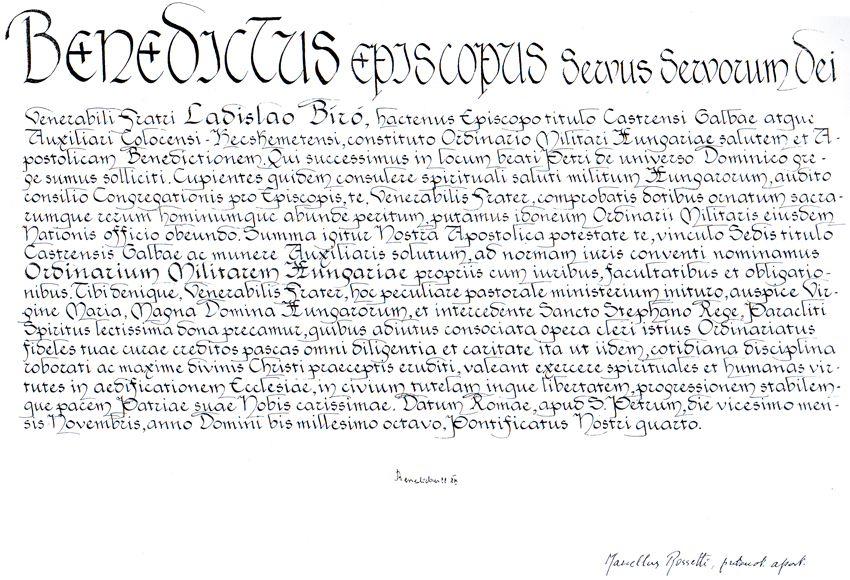 BENEDICTUS EPISCOPUS Servus Servorum Dei
Venerabili Fratri Ladislao Biró, hactenus Episcopo titulo Castrensi Galbae atque
Auxiliari Colocensi-Kecskemetensi, constituto Ordinario Militari Hungariae salutem et A-
postolicam Benedictionem. Qui successimus in locum beati Petri de universo Dominico gre-
ge sumus solliciti. Cupientes quidem consulere spirituali saluti militum Hungarorum, audito
consilio Congregationis pro Episcopis, te, Venerabilis Frater, comprobatis dotibus ornatum sacra-
rumque rerum hominumque abunde peritum, putamus idoneum Ordinarii Militaris eiusdem
Nationis officio obeundo. Summa igitur Nostra Apostolica potestate te, vinculo Sedis titulo
Castrensis Galbae ac munere Auxiliaris solutum, ad normam iuris conventi nominamus
Ordinarium Militarem Hungariae propriis cum iuribus, facultatibus et obligatio-
nibus. Tibi denique, Venerabilis Frater, hoc peculiare pastorale ministerium inituro, auspice Vir-
gine Maria, Magna Domina Hungarorum, et intercedente Sancto Stephano Rege, Paracliti
Spiritus lectissima dona precamur, quibus adiutus consociata opera cleri istius Ordinariatus
fideles tuae curae creditos pascas omni diligentia et caritate ita ut iidem, cotidiana disciplina
roborati ac maxime divinis Christi praeceptis eruditi, valeant exercere spirituales et humanas vir-
tutes in aedificationem Ecclesiae, in civium tutelam inque libertatem, progressionem stabilem-
que pacem Patriae suae Nobis carissimae. Datum Romae, apud S. Petrum, die vicesimo men-
sis Novembris, anno Domini bis millesimo octavo, Pontificatus Nostri quarto.
Benedictus PP XVI
Marcellus Rossetti, protonot. apost.